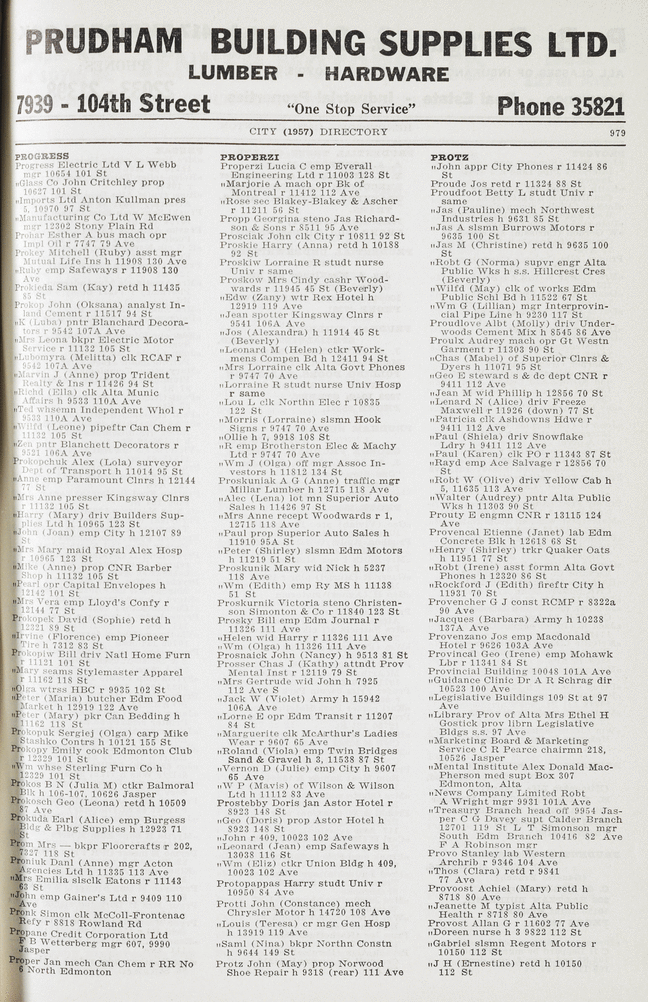 PRUDHAM BUILDING SUPPLIES LTD.
LUMBER - HARDWARE
7939 - 104th Street "One Stop Service" Phone 35821
CITY (1957) DIRECTORY 979
PROGRESS
Progress Electric Ltd V L Webb
mgr 10654 101 St
„Glass Co John Critchley prop
10627 101 St
„Imports Ltd Anton Kullman pres
5, 10970 97 St
„Manufacturing Co Ltd W McEwen
mgr 12302 Stony Plain Rd
Prohar Esther A bus mach opr
Impl Oil r 7747 79 Ave
Prokey Mitchell (Ruby) asst mgr
Mutual Life Ins h 11908 130 Ave
„Ruby emp Safeways r 11908 130
Ave
Prokieda Sam (Kay) retd h 11435
85 St
Prokop John (Oksana) analyst In-
land Cement r 11517 94 St
„K (Luba) pntr Blanchard Decora-
tors r 9542 107A Ave
„Mrs Leona bkpr Electric Motor
Service r 11132 105 St
„Lubomyra (Melitta) clk RCAF r
9542 107A Ave
„Marvin J (Anne) prop Trident
Realty & Ins r 11426 94 St
„Richd (Ella) clk Alta Munic
Affairs h 9533 110A Ave
„Ted whsemn Independent Whol r
9533 110A Ave
„Wilfd (Leone) pipeftr Can Chem r
11132 105 St
„Zen pntr Blanchett Decorators r
9521 106A Ave
Prokopchuk Alex (Lola) surveyor
Dept of Transport h 11014 95 St
„Anne emp Paramount Clnrs h 12144
77 St
„Mrs Anne presser Kingsway Clnrs
r 11132 105 St
„Harry (Mary) driv Builders Sup-
plies Ltd h 10965 123 St
„John (Joan) emp City h 12107 89
St
„Mrs Mary maid Royal Alex Hosp
r 10965 123 St
„Mike (Anne) prop CNR Barber
Shop h 11132 105 St
„Pearl opr Capital Envelopes h
12142 101 St
„Mrs Vera emp Lloyd's Confy r
12144 77 St
Prokopek David (Sophie) retd h
12321 89 St
„Irvine (Florence) emp Pioneer
Tire h 7312 83 St
Prokopiw Bill driv Natl Home Furn
r 11121 101 St
„Mary seams Stylemaster Apparel
r 11162 118 St
„Olga wtrss HBC r 9935 102 St
„Peter (Maria) butcher Edm Food
Market h 12919 122 Ave
„Peter (Mary) pkr Can Bedding h
11162 118 St
Prokopuk Sergiej (Olga) carp Mike
Stashko Contrs h 10121 155 St
Prokopy Emily cook Edmonton Club
r 12329 101 St
„Wm whse Sterling Furn Co h
12329 101 St
Prokos B N (Julia M) ctkr Balmoral
Blk h 106-107, 10626 Jasper
Prokosch Geo (Leona) retd h 10509
87 Ave
Prokuda Earl (Alice) emp Burgess
Bldg & Plbg Supplies h 12923 71
St
Prom Mrs — bkpr Floorcrafts r 202,
7327 118 St
Promiuk Danl (Anne) mgr Acton
Agencies Ltd h 11335 113 Ave
„Mrs Emilia slsclk Eatons r 11143
63 St
„John emp Gainer's Ltd r 9409 110
Ave
Pronk Simon clk McColl-Frontenac
Refy r 8818 Rowland Rd
Propane Credit Corporation Ltd
F B Wetterberg mgr 607, 9990
Jasper
Proper Jan mech Can Chem r RR No
6 North Edmonton
PROPERZI
Properzi Lucia C emp Everall
Engineering Ltd r 11003 128 St
„Marjorie A mach opr Bk of
Montreal r 11412 112 Ave
„Rose sec Blakey-Blakey & Ascher
r 11211 56 St
Propp Georgina steno Jas Richard-
son & Sons r 8511 95 Ave
Prosciak John clk City r 10811 92 St
Proskie Harry (Anna) retd h 10188
92 St
Proskiw Lorraine R studt nurse
Univ r same
Proskow Mrs Cindy cashr Wood-
wards r 11945 45 St (Beverly)
„Edw (Zany) wtr Rex Hotel h
12919 119 Ave
„Jean spotter Kingsway Clnrs r
9541 106A Ave
„Jos (Alexandra) h 11914 45 St
(Beverly)
„Leonard M (Helen) ctkr Work-
mens Compen Bd h 12411 94 St
„Mrs Lorraine clk Alta Govt Phones
r 9747 70 Ave
„Lorraine R studt nurse Univ Hosp
r same
„Lou L clk Northn Elec r 10835
122 St
„Morris (Lorraine) slsmn Hook
Signs r 9747 70 Ave
„Ollie h 7, 9918 108 St
„R emp Brotherston Elec & Machy
Ltd r 9747 70 Ave
„Wm J (Olga) off mgr Assoc In-
vestors h 11812 134 St
Proskuniak A G (Anne) traffic mgr
Millar Lumber h 12715 118 Ave
„Alec (Lena) lot mn Superior Auto
Sales h 11426 97 St
„Mrs Anne recept Woodwards r 1,
12715 118 Ave
„Paul prop Superior Auto Sales h
11910 95A St
„Peter (Shirley) slsmn Edm Motors
h 11219 51 St
Proskunik Mary wid Nick h 5237
118 Ave
„Wm (Edith) emp Ry MS h 11138
51 St
Proskurnik Victoria steno Christen-
son Simonton & Co r 11840 123 St
Prosky Bill emp Edm Journal r
11326 111 Ave
„Helen wid Harry r 11326 111 Ave
„Wm (Olga) h 11326 111 Ave
Prosnadck John (Nancy) h 9513 81 St
Prosser Chas J (Kathy) attndt Prov
Mental Inst r 12119 79 St
„Mrs Gertrude wid John h 7925
112 Ave S
„Jack W (Violet) Army h 15942
106A Ave
„Lorne E opr Edm Transit r 11207
84 St
„Marguerite clk McArthur's Ladies
Wear r 9607 65 Ave
„Roland (Viola) emp Twin Bridges
Sand & Gravel h 3, 11538 87 St
„Vernon D (Julie) emp City h 9607
65 Ave
„W P (Mavis) of Wilson & Wilson
Ltd h 11112 83 Ave
Prostebby Doris jan Astor Hotel r
8923 148 St
„Geo (Doris) prop Astor Hotel h
8923 148 St
„John r 409, 10023 102 Ave
„Leonard (Jean) emp Safeways h
13038 116 St
„Wm (Eliz) ctkr Union Bldg h 409,
10023 102 Ave
Protopappas Harry studt Univ r
10950 84 Ave
Protti John (Constance) mech
Chrysler Motor h 14720 108 Ave
„Louis (Teresa) cr mgr Gen Hosp
h 13919 119 Ave
„Saml (Nina) bkpr Northn Constn
h 9644 149 St
Protz John (May) prop Norwood
Shoe Repair h 9318 (rear) 111 Ave
PROTZ
„John appr City Phones r 11424 86
St
Proude Jos retd r 11324 88 St
Proudfoot Betty L studt Univ r
same
„Jas (Pauline) mech Northwest
Industries h 9631 85 St
„Jas A slsmn Burrows Motors r
9635 100 St
„Jas M (Christine) retd h 9635 100
St
„Robt G (Norma) supvr engr Alta
Public Wks h s.s. Hillcrest Cres
(Beverly)
„Wilfd (May) clk of works Edm
Public Schl Bd h 11522 67 St
„Wm G (Lillian) mgr Interprovin-
cial Pipe Line h 9230 117 St
Proudlove Albt (Molly) driv Under-
woods Cement Mix h 8545 86 Ave
Proulx Audrey mach opr Gt Westn
Garment r 11303 90 St
„Chas (Mabel) of Superior Clnrs &
Dyers h 11071 95 St
„Geo E steward s & dc dept CNR r
9411 112 Ave
„Jean M wid Phillip h 12856 70 St
„Lenard N (Alice) driv Freeze
Maxwell r 11926 (down) 77 St
„Patricia clk Ashdowns Hdwe r
9411 112 Ave
„Paul (Shiela) driv Snowflake
Ldry h 9411 112 Ave
„Paul (Karen) clk PO r 11343 87 St
„Rayd emp Ace Salvage r 12856 70
St
„Robt W (Olive) driv Yellow Cab h
5, 11635 113 Ave
„Walter (Audrey) pntr Alta Public
Wks h 11303 90 St
Prouty E engmn CNR r 13115 124
Ave
Provencal Etienne (Janet) lab Edm
Concrete Blk h 12618 68 St
„Henry (Shirley) trkr Quaker Oats
h 11951 77 St
„Robt (Irene) asst formn Alta Govt
Phones h 12320 86 St
„Rockford J (Edith) fireftr City h
11931 70 St
Provencher G J const RCMP r 8322a
90 Ave
„Jacques (Barbara) Army h 10238
137A Ave
Provenzano Jos emp Macdonald
Hotel r 9626 103A Ave
Provincal Geo (Irene) emp Mohawk
Lbr r 11341 84 St
Provincial Building 10048 101A Ave
„Guidance Clinic Dr A R Schrag dir
10523 100 Ave
„Legislative Buildings 109 St at 97
Ave
„Library Prov of Alta Mrs Ethel H
Gostick prov librn Legislative
Bldgs s.s. 97 Ave
„Marketing Board & Marketing
Service C R Pearce chairmn 218,
10526 Jasper
„Mental Institute Alex Donald Mac-
Pherson med supt Box 307
Edmonton, Alta
„News Company Limited Robt
A Wright mgr 9931 101A Ave
„Treasury Branch head off 9954 Jas-
per C G Davey supt Calder Branch
12701 119 St L T Simonson mgr
South Edm Branch 10416 82 Ave
F A Robinson mgr
Provo Stanley lab Western
Archrib r 9346 104 Ave
„Thos (Clara) retd r 9841
77 Ave
Provoost Achiel (Mary) retd h
8718 80 Ave
„Jeanette M typist Alta Public
Health r 8718 80 Ave
Provost Allan G r 11602 77 Ave
„Doreen nurse h 3 9822 112 St
„Gabriel slsmn Regent Motors r
10150 112 St
„J H (Ernestine) retd h 10150
112 St